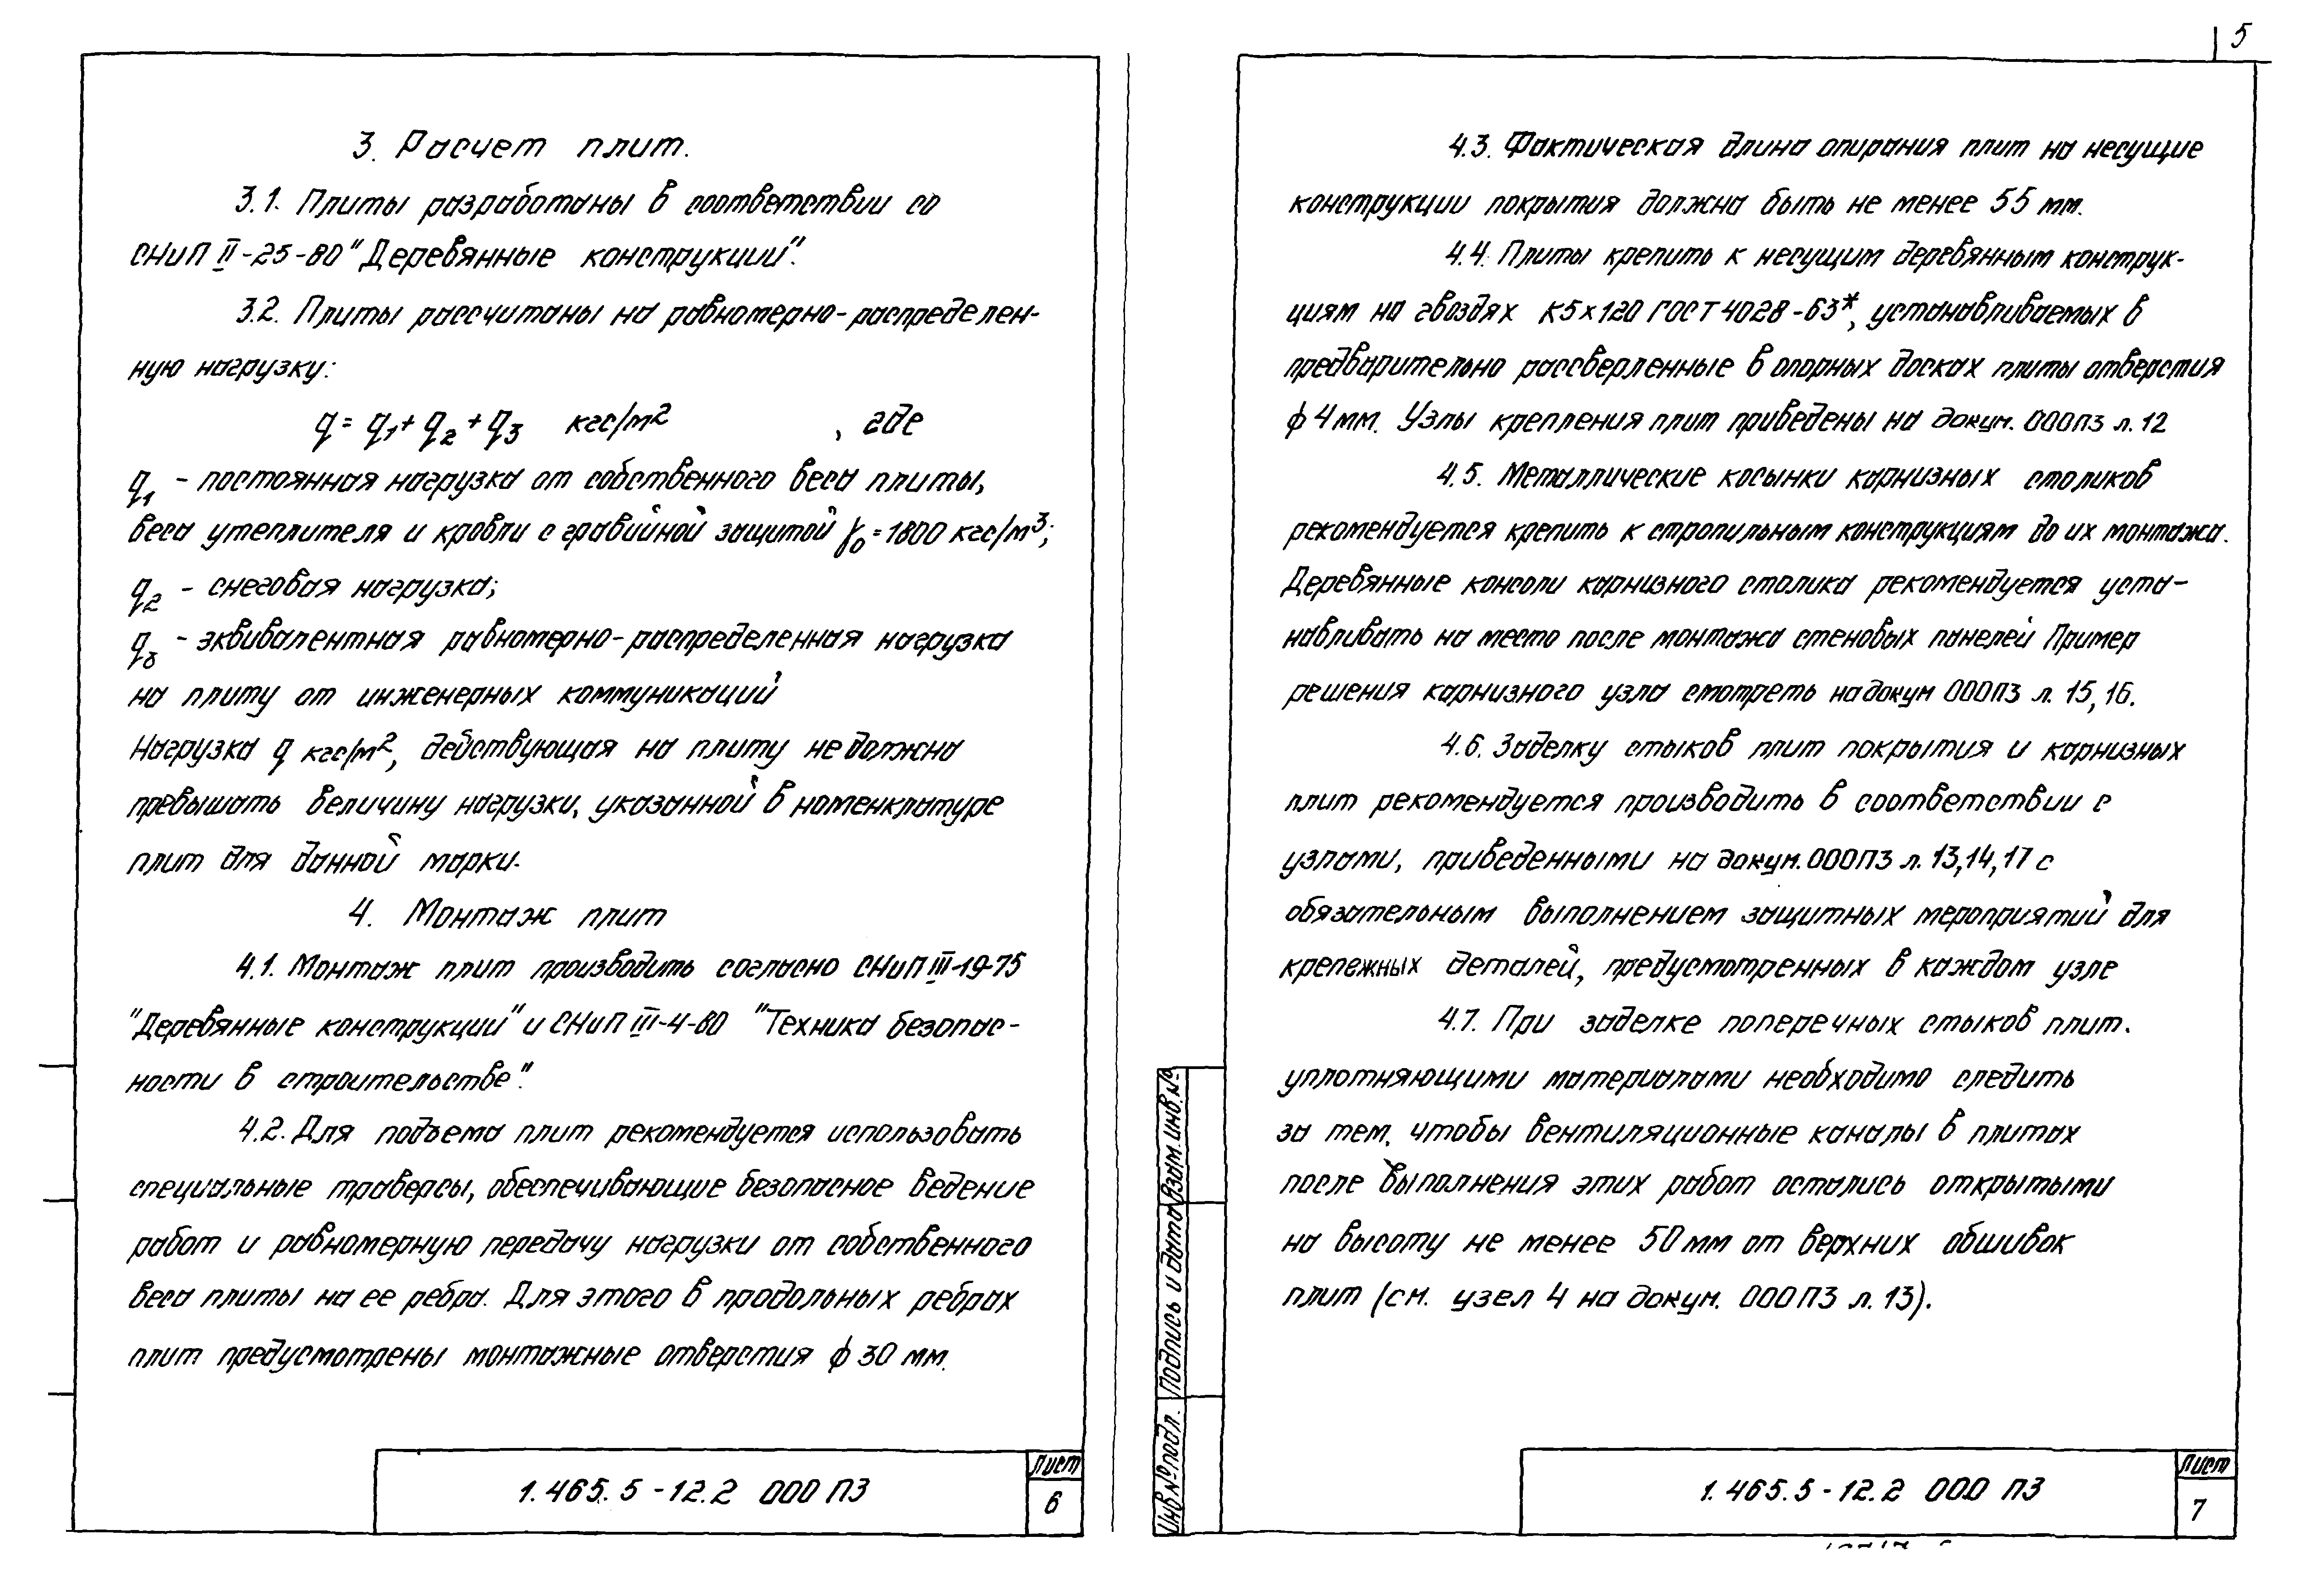 3. Расчет плит.
3.1. Плиты разработаны в соответствии со
СНиП II-25-80 "Деревянные конструкции".
3.2. Плиты рассчитаны на равномерно-распределен-
ную нагрузку:
q = q1 + q2 + q3 кгс/м², где
q1 - постоянная нагрузка от собственного веса плиты,
веса утеплителя и кровли с гравийной защитой γ0 = 1800 кгс/м³;
q2 - снеговая нагрузка;
q3 - эквивалентная равномерно-распределенная нагрузка
на плиту от инженерных коммуникаций
Нагрузка q кгс/м², действующая на плиту не должна
превышать величину нагрузки, указанной в номенклатуре
плит для данной марки.
4. Монтаж плит
4.1. Монтаж плит производить согласно СНиП III-19-75
"Деревянные конструкции" и СНиП III-4-80 "Техника безопас-
ности в строительстве".
4.2. Для подъема плит рекомендуется использовать
специальные траверсы, обеспечивающие безопасное ведение
работ и равномерную передачу нагрузки от собственного
веса плиты на ее ребра. Для этого в продольных ребрах
плит предусмотрены монтажные отверстия ϕ 30 мм.
1.465.5-12.2 000 ПЗ
Лист
6
5
4.3. Фактическая длина опирания плит на несущие
конструкции покрытия должна быть не менее 55 мм.
4.4. Плиты крепить к несущим деревянным конструк-
циям на гвоздях К5×120 ГОСТ 4028-63*, устанавливаемых в
предварительно рассверленные в опорных досках плиты отверстия
ϕ 4 мм. Узлы крепления плит приведены на докум. 000ПЗ л. 12
4.5. Металлические косынки карнизных столиков
рекомендуется крепить к стропильным конструкциям до их монтажа.
Деревянные консоли карнизного столика рекомендуется уста-
навливать на место после монтажа стеновых панелей Пример
решения карнизного узла смотреть на докум 000ПЗ л. 15, 16.
4.6. Заделку стыков плит покрытия и карнизных
плит рекомендуется производить в соответствии с
узлами, приведенными на докум. 000ПЗ л. 13,14,17 с
обязательным выполнением защитных мероприятий для
крепежных деталей, предусмотренных в каждом узле
4.7. При заделке поперечных стыков плит.
уплотняющими материалами необходимо следить
за тем, чтобы вентиляционные каналы в плитах
после выполнения этих работ остались открытыми
на высоту не менее 50 мм от верхних обшивок
плит (см. узел 4 на докум. 000ПЗ л. 13).
Инв.№ подл.
Подпись и дата
Взам. инв. №
1.465.5-12.2 000 ПЗ
Лист
7